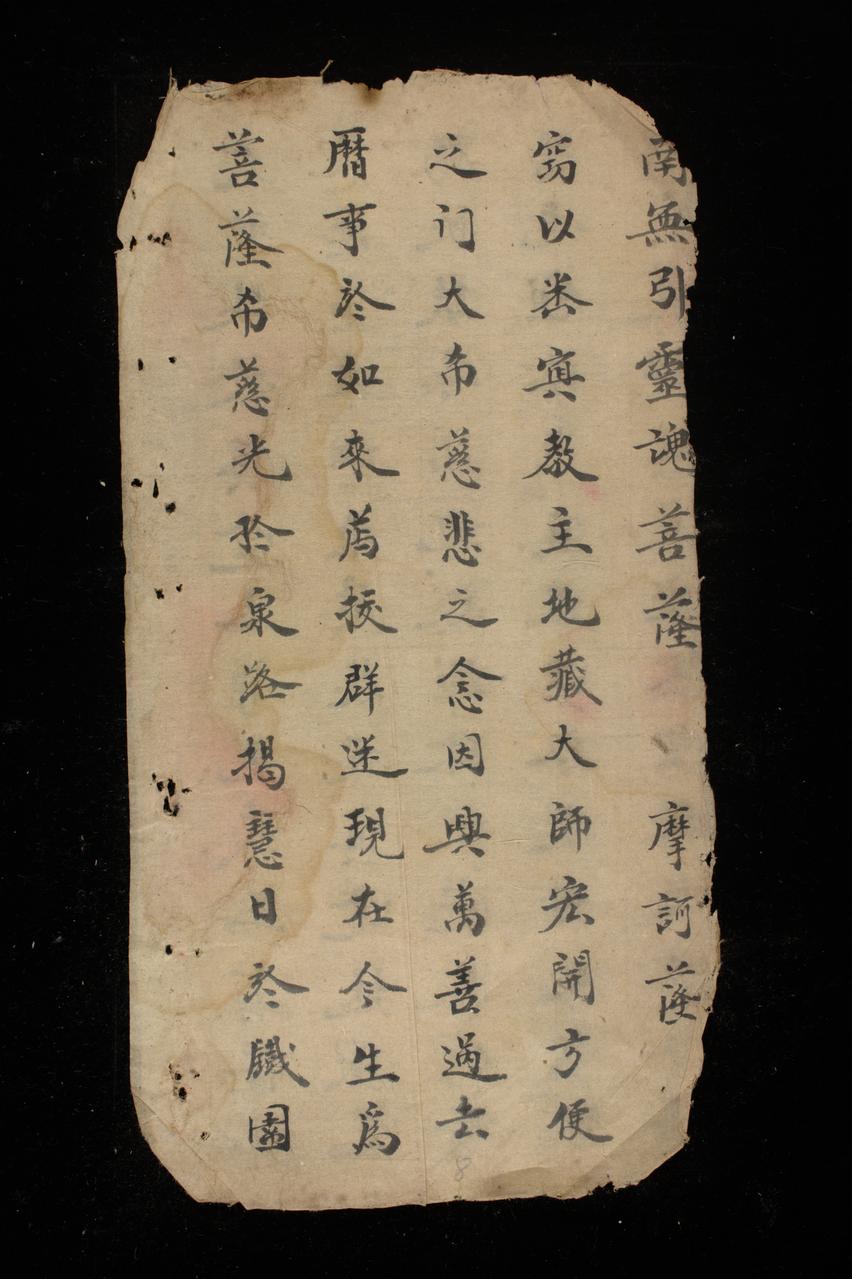 南無引靈魂菩薩 摩訶薩
窃以尜㝠教主地藏大師宏開方便
之门大布慈悲之念因興萬善過去
曆事於如來為拔群迷現在令生爲
菩薩布慈光於泉路揭慧日於鐡圍
8